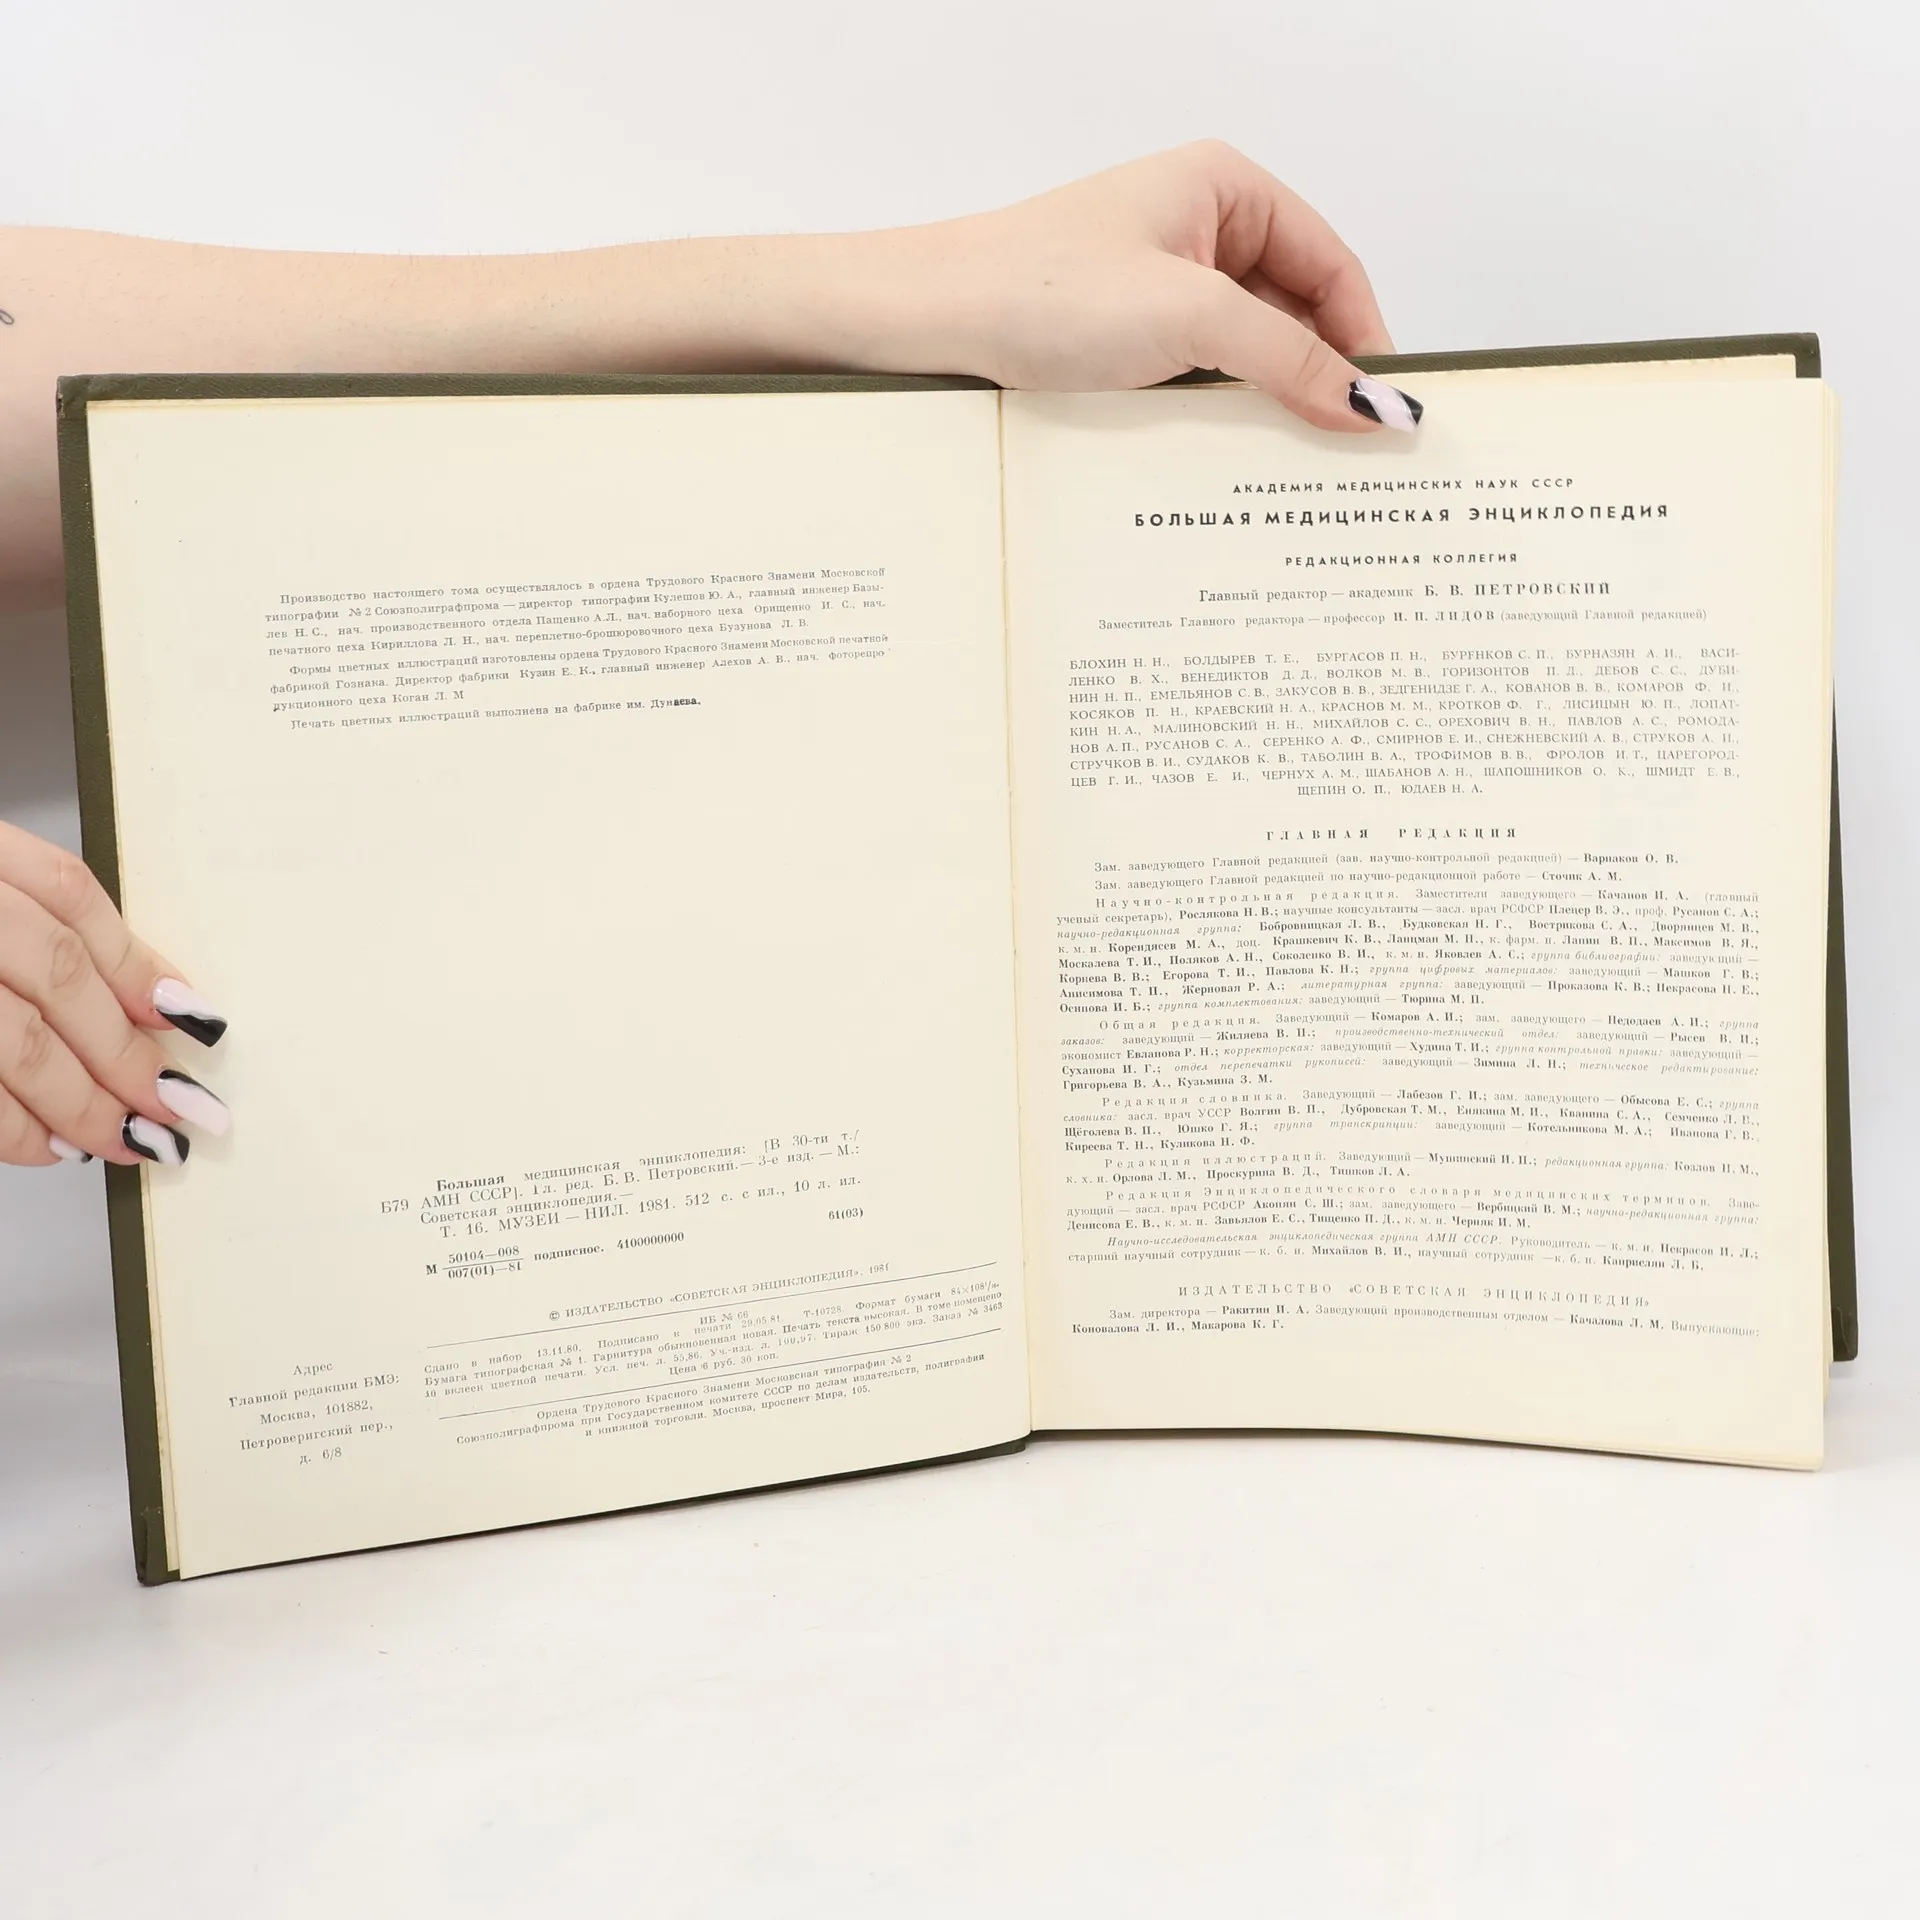 Производство настоящего тома осуществлялось в ордена Трудового Красного Знамени Московской
типографии № 2 Союзполиграфпрома — директор типографии Кулешов Ю. А., главный инженер Базы-
лев Н. С., нач. производственного отдела Пащенко А.Л., нач. наборного цеха Орищенко И. С., нач.
печатного цеха Кириллова Л. Н., нач. переплетно-брошюровочного цеха Бузунова Л. В.
Формы цветных иллюстраций изготовлены ордена Трудового Красного Знамени Московской печатной
фабрикой Гознака. Директор фабрики Кузин Е. К., главный инженер Алехов А. В., нач. Фоторепро-
дукционного цеха Коган Л. М
Печать цветных иллюстраций выполнена на фабрике им. Дунаева.
Большая медицинская энциклопедия: [В 30-ти т./
Б79 АМН СССР]. Гл. ред. Б. В. Петровский. — 3-е изд. — М.:
Советская энциклопедия. —
Т. 16. МУЗЕИ — НИЛ. 1981. 512 с. с ил., 10 л. ил.
61(03)
М 50104—008
007(01)—81 подписное. 4100000000
© ИЗДАТЕЛЬСТВО «СОВЕТСКАЯ ЭНЦИКЛОПЕДИЯ». 1981
ИБ № 66
Сдано в набор 13.11.80. Подписано к печати 29.05.81. Т-10728. Формат бумаги 84×108¹/₁₆
Бумага типографская № 1. Гарнитура обыкновенная новая. Печать текста высокая. В томе помещено
10 вклеек цветной печати. Усл. печ. л. 55,86. Уч.-изд. л. 100,97. Тираж 150 800 экз. Заказ № 3463
Цена 6 руб. 30 коп.
Ордена Трудового Красного Знамени Московская типография № 2
Союзполиграфпрома при Государственном комитете СССР по делам издательств, полиграфии
и книжной торговли. Москва, проспект Мира, 105.
Адрес
Главной редакции БМЭ:
Москва, 101882,
Петроверигский пер.,
д. 6/8
АКАДЕМИЯ МЕДИЦИНСКИХ НАУК СССР
БОЛЬШАЯ МЕДИЦИНСКАЯ ЭНЦИКЛОПЕДИЯ
РЕДАКЦИОННАЯ КОЛЛЕГИЯ
Главный редактор — академик Б. В. ПЕТРОВСКИЙ
Заместитель Главного редактора — профессор И. П. ЛИДОВ (заведующий Главной редакцией)
БЛОХИН Н. Н., БОЛДЫРЕВ Т. Е., БУРГАСОВ П. Н., БУРЕНКОВ С. П., БУРНАЗЯН А. И., ВАСИ-
ЛЕНКО В. Х., ВЕНЕДИКТОВ Д. Д., ВОЛКОВ М. В., ГОРИЗОНТОВ П. Д., ДЕБОВ С. С., ДУБИ-
НИН Н. П., ЕМЕЛЬЯНОВ С. В., ЗАКУСОВ В. В., ЗЕДГЕНИДЗЕ Г. А., КОВАНОВ В. В., КОМАРОВ Ф. И.,
КОСЯКОВ П. Н., КРАЕВСКИЙ Н. А., КРАСНОВ М. М., КРОТКОВ Ф. Г., ЛИСИЦЫН Ю. П., ЛОПАТ-
КИН Н. А., МАЛИНОВСКИЙ Н. Н., МИХАЙЛОВ С. С., ОРЕХОВИЧ В. Н., ПАВЛОВ А. С., РОМОДА-
НОВ А. П., РУСАНОВ С. А., СЕРЕНКО А. Ф., СМИРНОВ Е. И., СНЕЖНЕВСКИЙ А. В., СТРУКОВ А. И.,
СТРУЧКОВ В. И., СУДАКОВ К. В., ТАБОЛИН В. А., ТРОФИМОВ В. В., ФРОЛОВ И. Т., ЦАРЕГОРОД-
ЦЕВ Г. И., ЧАЗОВ Е. И., ЧЕРНУХ А. М., ШАБАНОВ А. Н., ШАПОШНИКОВ О. К., ШМИДТ Е. В.,
ЩЕПИН О. П., ЮДАЕВ Н. А.
ГЛАВНАЯ РЕДАКЦИЯ
Зам. заведующего Главной редакцией (зав. научно-контрольной редакцией) — Варнаков О. В.
Зам. заведующего Главной редакцией по научно-редакционной работе — Сточик А. М.
Научно-контрольная редакция. Заместители заведующего — Качанов И. А. (главный
ученый секретарь), Рослякова Н. В.; научные консультанты — засл. врач РСФСР Плецер В. Э., проф. Русанов С. А.;
научно-редакционная группа: Бобровницкая Л. В., Будковская Н. Г., Вострикова С. А., Дворянцев М. В.,
к. м. н. Корендясев М. А., доц. Крашкевич К. В., Ланцман М. Н., к. фарм. н. Лапин В. П., Максимов В. Я.,
Москалева Т. И., Поляков А. Н., Соколенко В. И., к. м. н. Яковлев А. С.; группа библиографии: заведующий —
Корнева В. В.; Егорова Т. И., Павлова К. Н.; группа цифровых материалов: заведующий — Машков Г. В.;
Анисимова Т. Н., Жерновая Р. А.; литературная группа: заведующий — Проказова К. В.; Некрасова Н. Е.,
Осипова И. Б.; группа комплектования: заведующий — Тюрина М. П.
Общая редакция. Заведующий — Комаров А. И.; зам. заведующего — Недодаев А. И.; группа
заказов: заведующий — Жиляева В. П.; производственно-технический отдел: заведующий — Рысев В. И.;
экономист Евланова Р. Н.; корректорская: заведующий — Худина Т. И.; группа контрольной правки: заведующий —
Суханова И. Г.; отдел перепечатки рукописей: заведующий — Зимина Л. Н.; техническое редактирование:
Григорьева В. А., Кузьмина З. М.
Редакция словника. Заведующий — Лабезов Г. И.; зам. заведующего — Обысова Е. С.; группа
словника: засл. врач УССР Волгин В. П., Дубровская Т. М., Енякина М. И., Кванина С. А., Семченко Л. В.,
Щёголева В. П., Юшко Г. Я.; группа транскрипции: заведующий — Котельникова М. А.; Иванова Г. В.,
Киреева Т. Н., Куликова Н. Ф.
Редакция иллюстраций. Заведующий — Мушинский И. П.; редакционная группа: Козлов Н. М.,
к. х. н. Орлова Л. М., Проскурина В. Д., Тишков Л. А.
Редакция Энциклопедического словаря медицинских терминов. Заве-
дующий — засл. врач РСФСР Акопян С. Ш.; зам. заведующего — Вербицкий В. М.; научно-редакционная группа:
Денисова Е. В., к. м. н. Завьялов Е. С., Тищенко П. Д., к. м. н. Черняк И. М.
Научно-исследовательская энциклопедическая группа АМН СССР. Руководитель — к. м. н. Некрасов И. Л.;
старший научный сотрудник — к. б. н. Михайлов В. И., научный сотрудник — к. б. н. Каприелян Л. Б.
ИЗДАТЕЛЬСТВО «СОВЕТСКАЯ ЭНЦИКЛОПЕДИЯ»
Зам. директора — Ракитин И. А. Заведующий производственным отделом — Качалова Л. М. Выпускающие:
Коновалова Л. И., Макарова К. Г.